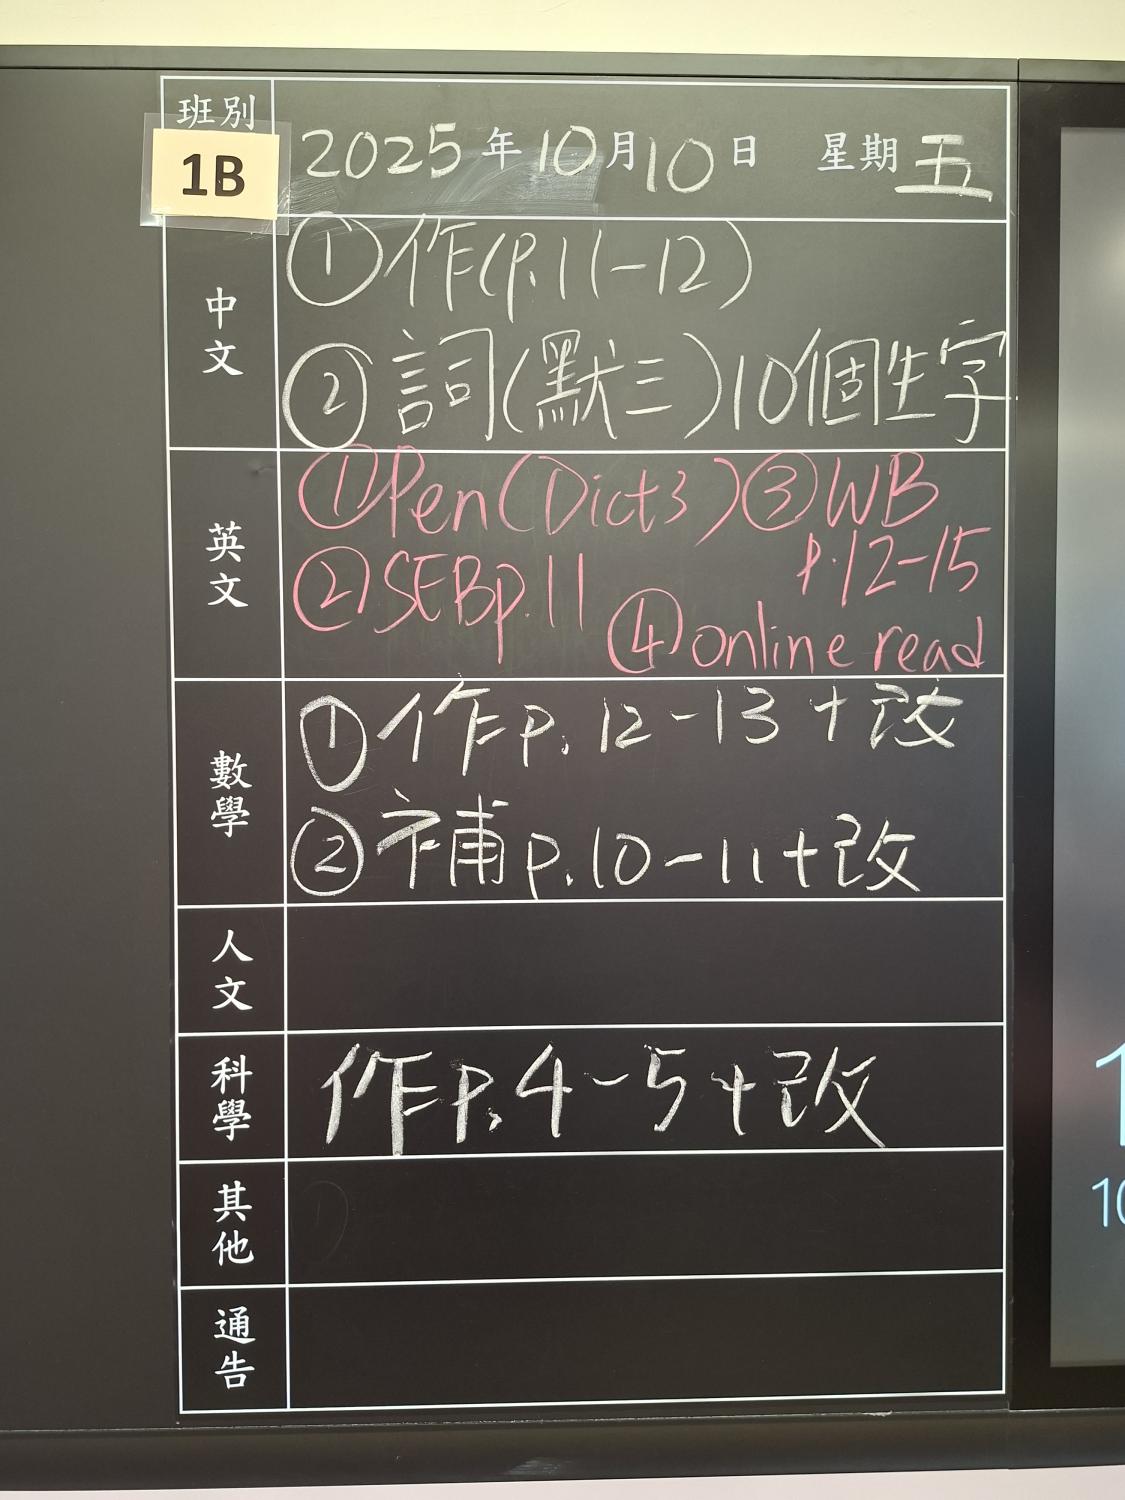 班別
1B
2025年10月10日 星期五
中文
①作(p.11-12)
②詞(默三)10個生字
英文
①Pen(Dict3) ③WB
p.12-15
②SEBp.11
④online read
數學
①作p.12-13+改
②補p.10-11+改
人文
科學
作p.4~5+改
其他
通告
10